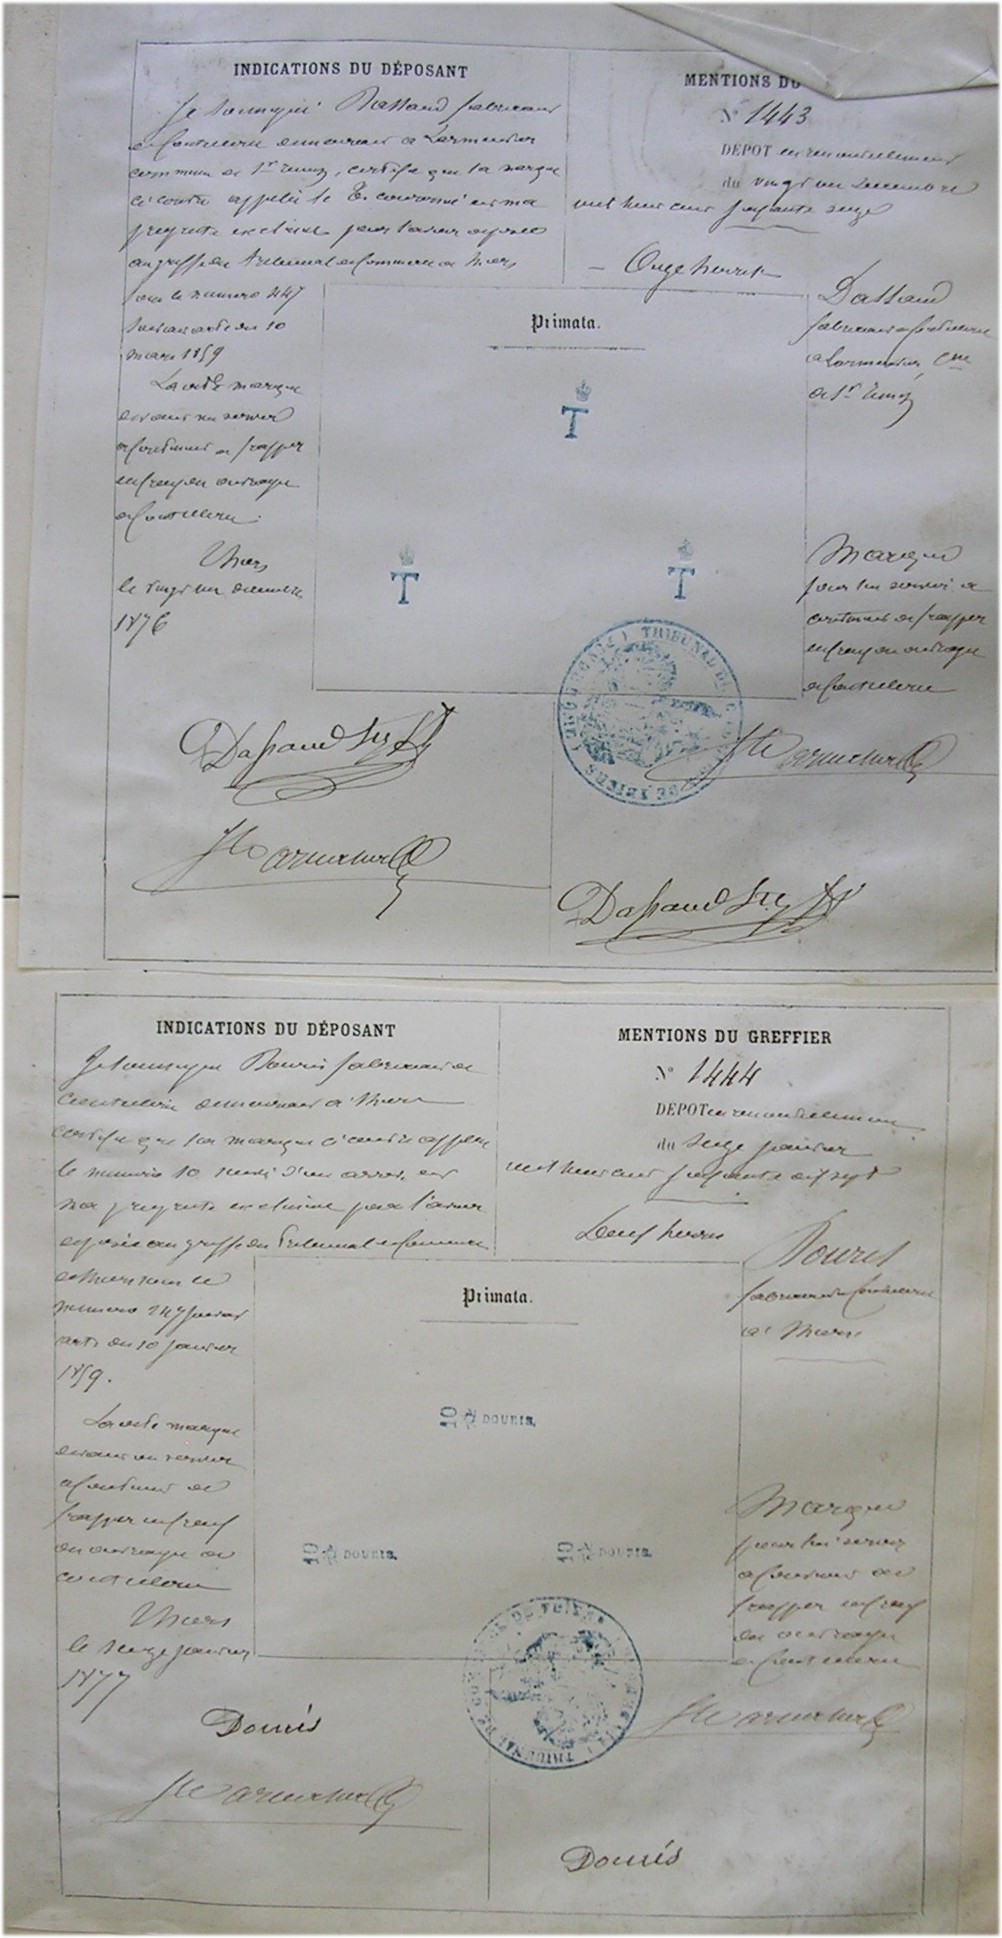 INDICATIONS DU DÉPOSANT
Je soussigné Dassaud fabricant
de Coutellerie demeurant à Larmentier
commune de St Rémy, certifie que la marque
ci contre appelée le T couronné est ma
propriété exclusive pour l'avoir déposée
au greffe du tribunal de Commerce de Thiers
sous le numéro 247
suivant acte du 10
mars 1859
La dite marque
devant me servir
à Continuer de frapper
en creux en ouvrages
de Coutellerie.
Thiers
le vingt un décembre
1876
Dassaud
MENTIONS DU
N° 1443
DÉPOT en renouvellement
du vingt un Décembre
mil huit cent soixante seize
Onze heures
Dassaud
fabricant de Coutellerie
à Larmentier Cne
de St Rémy
Primata.
T
T
T
Marque
pour lui servir à
continuer de frapper
en creux en ouvrages
de Coutellerie
TRIBUNAL DE
DE THIERS
Dassaud
INDICATIONS DU DÉPOSANT
Je soussigné Douris fabricant de
Coutellerie demeurant à Thiers
certifie que la marque ci contre appelée
le numéro 10 suivi d'un
ma propriété exclusive pour l'avoir
déposée au greffe du Tribunal de Commerce
de Thiers sous le
numéro 247 suivant
acte du 10 janvier
1859.
La dite marque
devant me servir
à Continuer de
frapper en creux
en ouvrages de
coutellerie
Thiers
le seize janvier
1877
Douris
MENTIONS DU GREFFIER
N° 1444
DÉPOT en renouvellement
du seize janvier
mil huit cent soixante dix sept
Deux heures
Douris
fabricant de Coutellerie
à Thiers
Primata.
10 DOURIS.
10 DOURIS.
10 DOURIS.
Marque
pour lui servir
à Continuer de
frapper en creux
en ouvrages
de Coutellerie
TRIBUNAL DE
DE THIERS
Douris